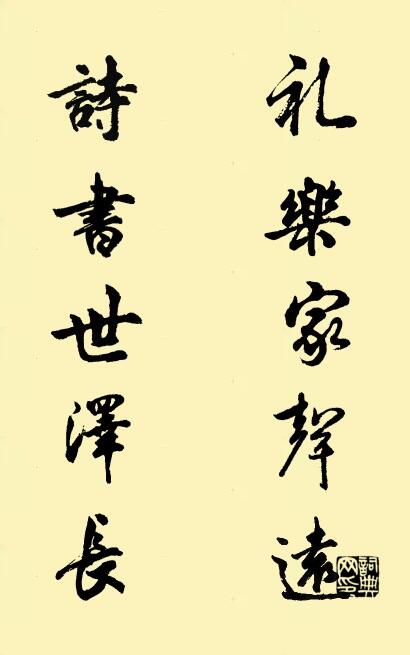 礼樂家聲遠
詩書世澤長
詞典網